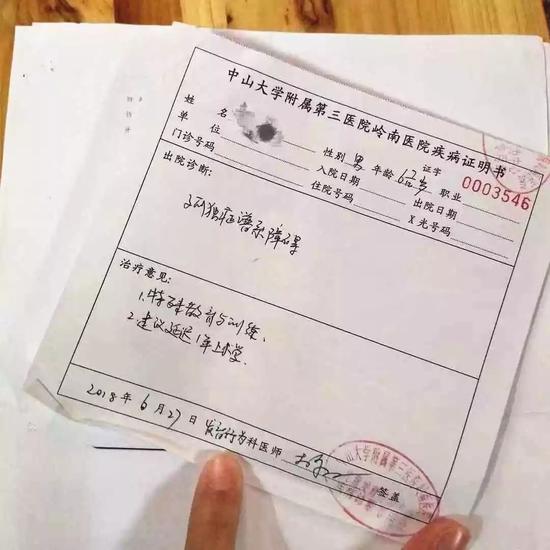 中山大学附属第三医院岭南医院疾病证明书
证字 0003546
姓名 性别 男 年龄 6岁 职业
单位 入院日期 出院日期
门诊号码 住院号码 X光号码
出院诊断：
孤独症谱系障碍
治疗意见：
1.特殊教育与训练、
2.建议延迟1年上小学.
2018年6月27日 发育行为科医师 签盖
中山大学附属第三医院岭南医院